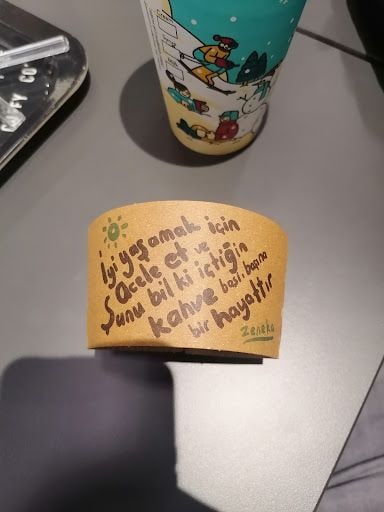 İyi yaşamak için
Acele et ve
Şunu bil ki içtiğin
kahve başlı başına
bir hayattır
Zeneka